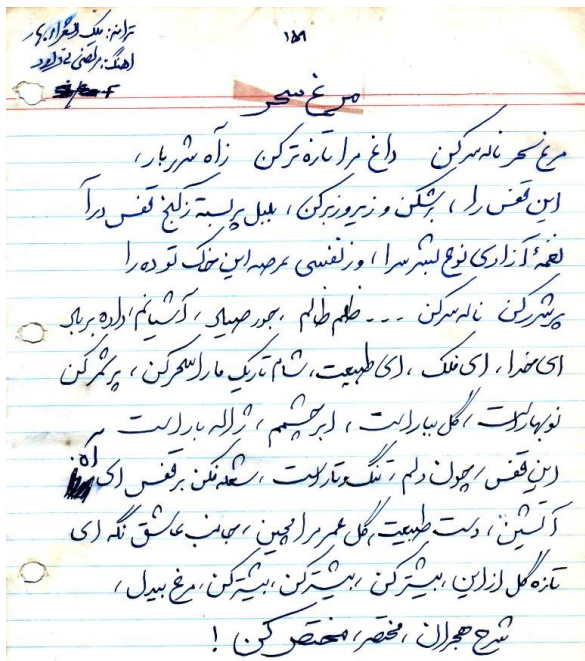 ترانه: ملک الشعرا بهار
۱۵۱
اهنگ: مرتضی نی داود
مرغ سحر
مرغ سحر ناله سر کن داغ مرا تازه تر کن زآه شرربار،
این قفس را، برشکن و زیر و زبر کن، بلبل پربسته ز کنج قفس درآ
نغمهٔ آزادی نوع بشر سرا، وز نفسی عرصه این خاک توده را
پرشرر کن ناله سر کن ... ظلم ظالم، جور صیاد، آشیانم داده بر باد
ای خدا، ای فلک، ای طبیعت، شام تاریک ما را سحر کن، پرثمر کن
نوبهار است، گل ببار است، ابر چشمم، ژاله بار است
این قفس، چون دلم، تنگ و تار است، شعله فکن بر قفس ای آه
آتشین، دست طبیعت گل عمر مرا مچین، جانب عاشق نگه ای
تازه گل از این، بیشتر کن، بیشتر کن، بیشتر کن، مرغ بیدل،
شرح هجران، مختصر، مختصر کن!